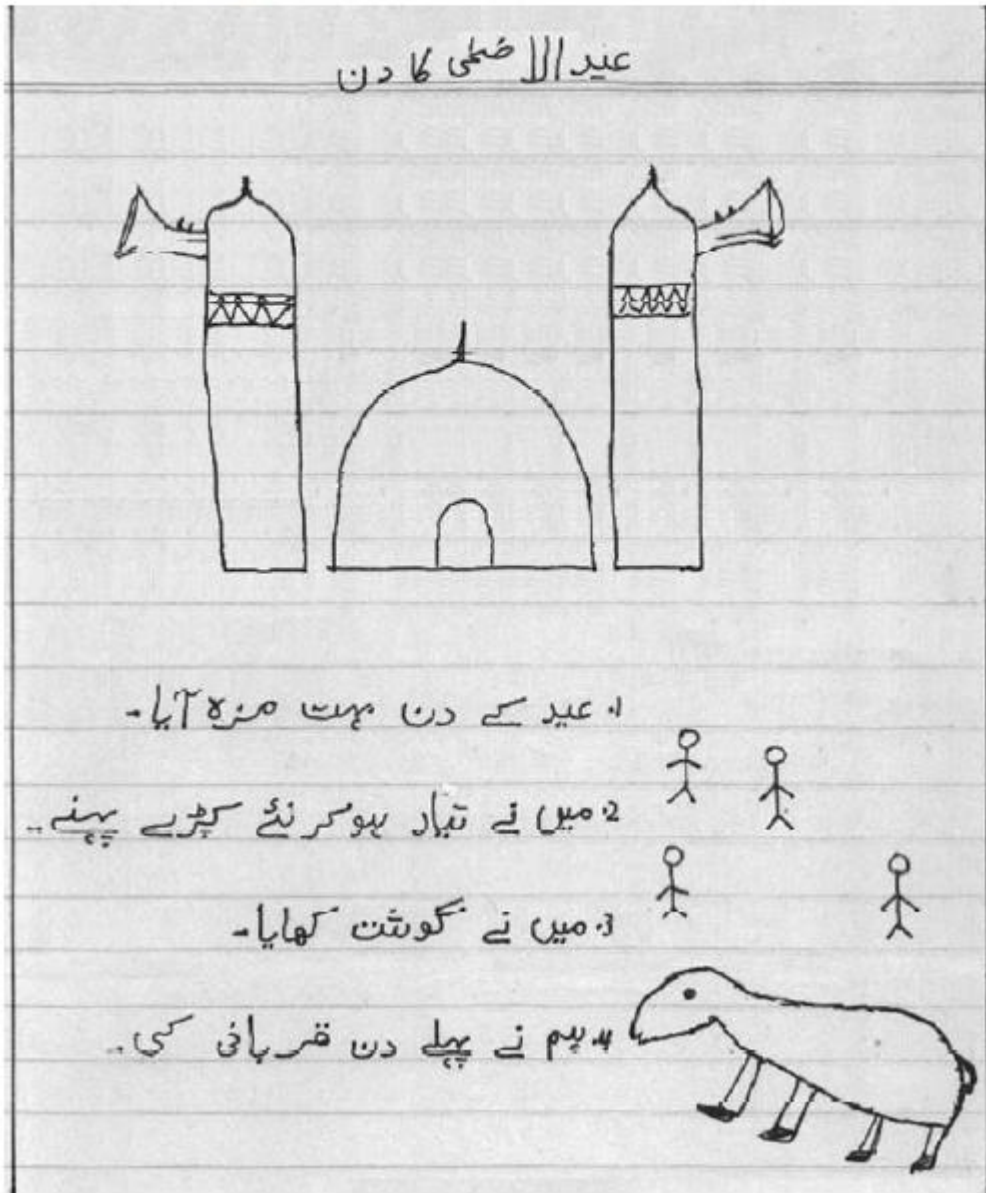 عید الاضحی کا دن
1. عید کے دن بہت مزہ آیا۔
2. میں نے تیار ہوکر نئے کپڑے پہنے۔
3. میں نے گوشت کھایا۔
4. ہم نے پہلے دن قربانی کی۔